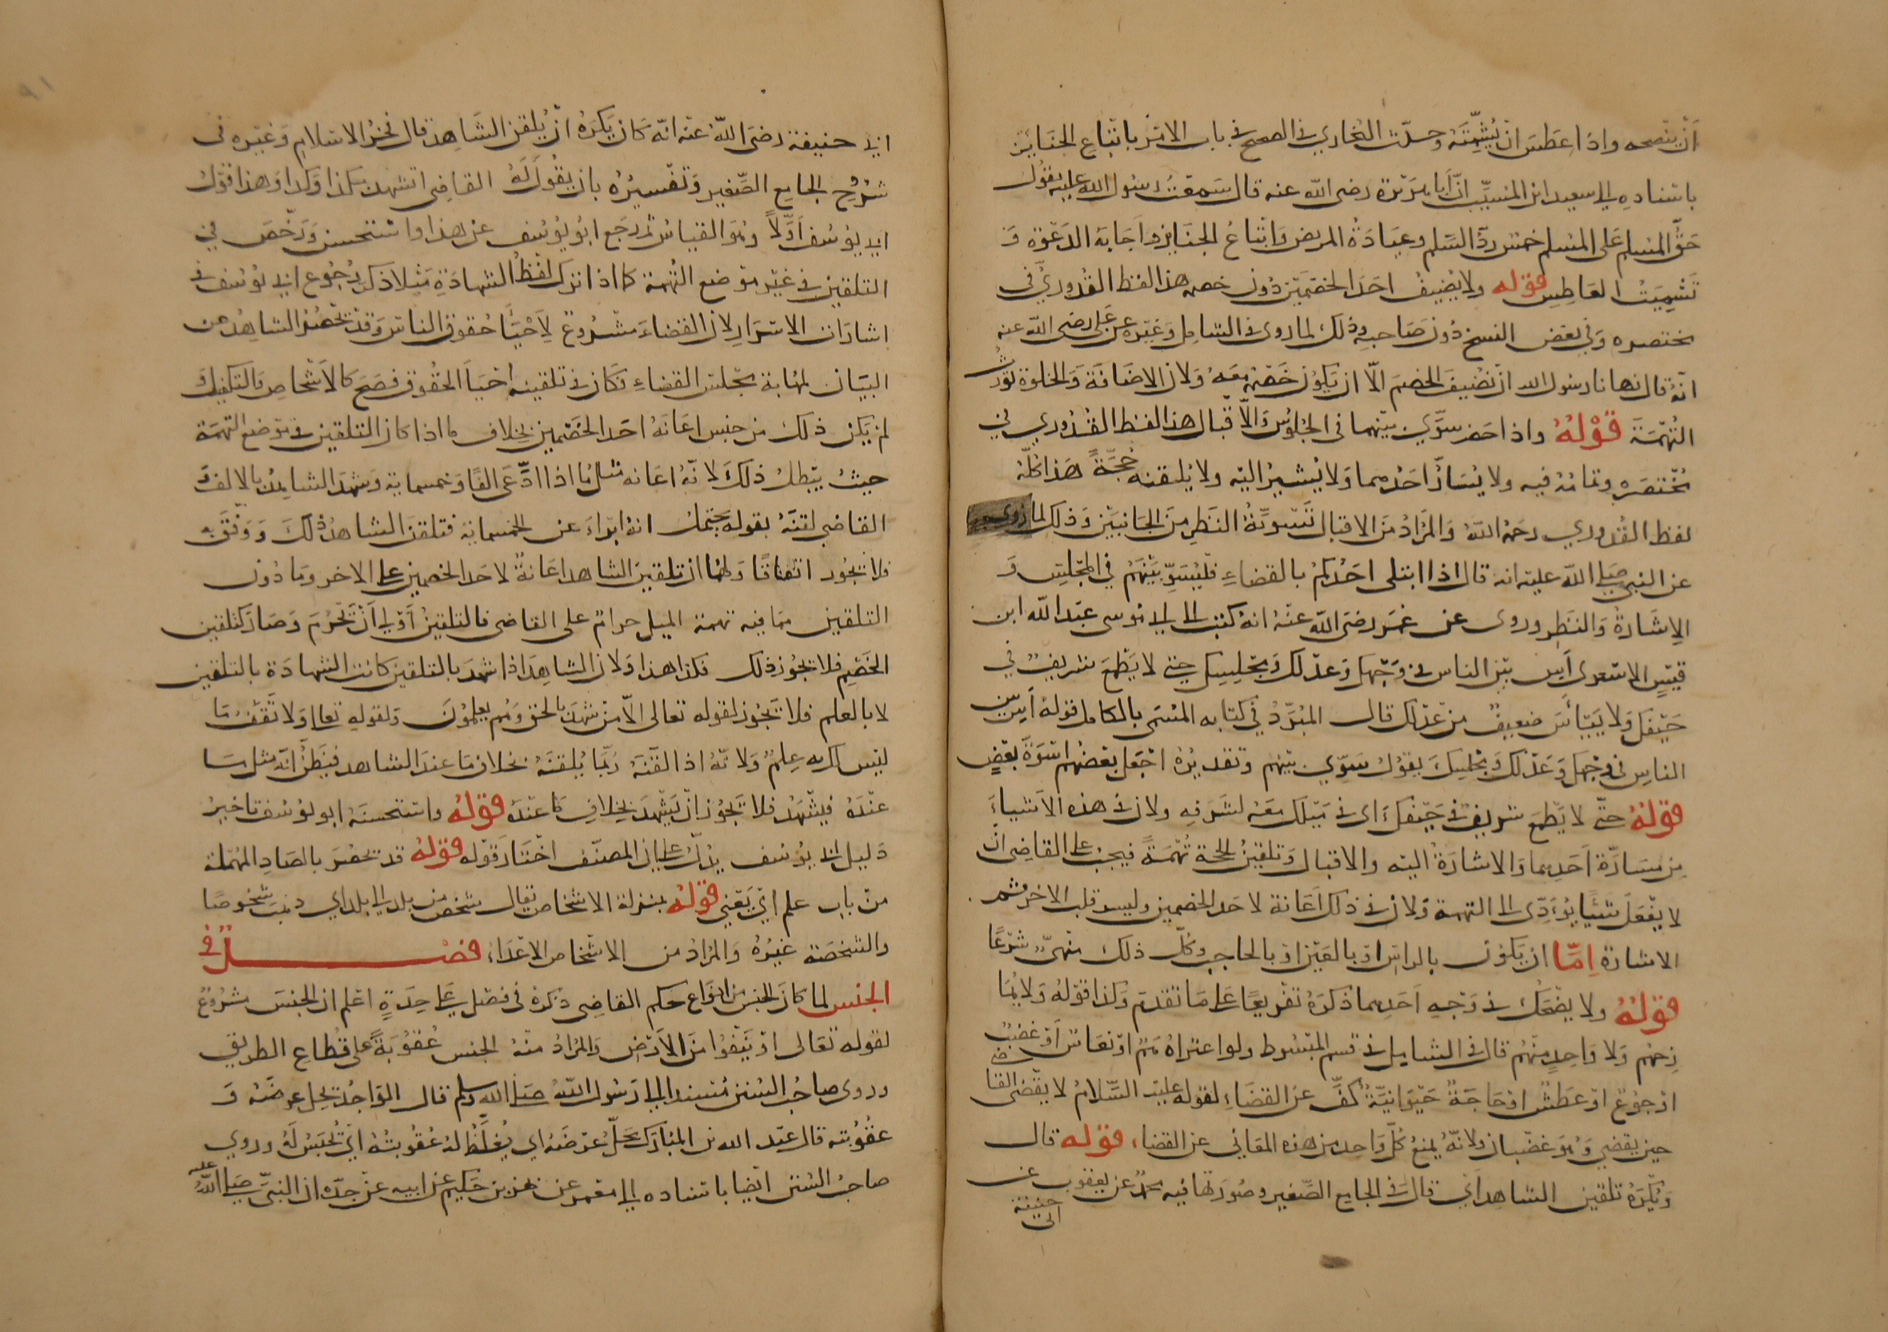 أن ينصحه واذا عطس ان يُشمّته وحدّث البخاري في الصحيح في باب الامر باتباع الجنائز
باسناده الى سعيد ابن المسيّب انّ أبا هريرة رضى الله عنه قال سَمعتُ رسول الله عليه يقول
حقّ المسلم على المسلم خمس ردّ السّلم وعيادة المريض واتباعُ الجنايز واجابة الدعوة و
تشميت العاطس قوله ولا يُضيفُ احدَ الخصمين دُون خصمه هذا لفظ القُدوريّ في
مختصره وفي بعض النسخ دُون صَاحبهِ وذلك لما روى في الشامل وغيره عن على رضى الله عنه
انّه قال نهانا رسول الله ان نُضيفَ الخصمَ الّا ان يكون خَصمُه معَهُ ولان الاضافة والخلوة تورثُ
التُهمَة قَوْلهُ واذا حضرا سوّى بينهما في الجلوس والاقبال هذا لفظ القُدُوري في
مُختصَره وتمامُه فيه ولا يُسَارُّ احَدَهما ولا يُشيرُ اليه ولا يُلقنه حُجّةً هَذا كلّه
لفظ القُدوري رحمهُ اللهُ والمُرادُ من الاقبال تَسويَةُ النَظر منَ الجَانبَيْن وَذلك لما روى
عن النبى صلى الله عليه انه قال اذا ابتلى احَدُكم بالقضاءِ فليُسَوِّ بَينهُم في المجلِسِ و
الإشَارَة والنَظر وروى عن عُمَر رَضىَ الله عنهُ انه كتب الى ابى موسى عبد الله ابن
قيسٍ الاشعرى آسِ بَيْن الناس في وَجهك وَعدلك وَمجلِسك حتى لا يَطمَعَ شريفٌ في
حَيْفِكَ ولا يَيْئاسَ ضعيفٌ من عَدلك قال المُبَرّدُ في كتابه المسَمّى بالكامل قوله آسِ بين
الناس في وجهك وَعدلكَ ومجلسِكَ يقُولُ سَوّى بينهم وتقديرُه اجعَل بعضَهُم اسْوَةَ بَعضٍ
قولهُ حتّى لا يَطمعَ شريفٌ في حَيْفِكَ اى في مَيلك معَه لشرفِه ولان في هذه الأشياءَ
مِن مسَارّة اَحَدِهما وَالاشارَةُ اليه والاقبال وَتلقينُ الحجة تُهمَةً فيجبُ على القاضى انْ
لا يفعَلَ شيئًا يُؤَدّى الى التهمة ولان في ذلك اعَانة لاحد الخصمين وليس قلب الاخر ثم
الاشارة اِمّا ان يَكون بالراسِ او بالعَين او بالحاجب وكُلّ ذلك منهيٌّ شرْعًا
قولهُ ولا يضحَكُ في وَجهِ اَحَدِهما ذكرَهُ تفريعًا على مَا تقَدمَ وكذا قولهُ ولا يُمَا
زِحهُم وَلا وَاحدٍ منهُم قال في الشامل في قسم المبسُوط ولو اعتراهُ هَمّ او نعَاسٌ أو غضَبٌ
او جُوعٌ او عَطشٌ او حَاجَةٌ حَيَوانيّةٌ كُفَّ عن القضَاءِ لقوله عليه السَّلامُ لا يقضى القاضى
حينَ يقضى وَهو غضبانُ ولانّهُ يمنعُ كُلَّ وَاحِدٍ من هذه المعَانى عن القضا، قوله قال
وَيُكرَهُ تلقينُ الشاهد اى قال في الجامع الصَّغير وصُورَتها فيه محمّدٌ عن يعقُوب عن
ابى حنيفة
ابى حنيفة رضىَ اللهُ عنه انّه كان يكرَهُ انْ يُلقنَ الشاهدَ قال فخرُ الاسلام وغيره في
شُرُوح الجامع الصَّغير وَتفسيرُه بان يقُولَ لَهُ القاضى اتشهد بكذا وكذا وهذا قوْلُ
ابى يوسُفَ اَوّلًا وهُوَ القياسُ ثم رجَعَ ابُو يُوسُف عن هذا واستحسنَ وَرَخّصَ في
التلقين في غير موضع التُهمة كما اذا ترك لَفظُ الشهادَةِ مَثلًا ذكر رُجُوعَ ابى يُوسُفَ في
اشارات الاسرَار لان القضاءَ مَشرُوعٌ لاَحْيَاءِ حُقوق الناس وَقد يَحصَرُ الشاهِدُ عن
البيَان لمهَابةِ مجلس القضاءِ فكان في تلقينه احْيَاءَ الحقُوق فصَحَّ كالأشخاصِ والتكفيل
لم يكن ذلك من جنس اعَانَة احَدِ الخَصمين بخلاف ما اذا كان التلقينُ في مَوضع التهمَة
حيثُ يبْطلُ ذلكَ لانّهُ اعانة مثلُ ما اذا ادّعَى الفًا وخمسماية وشهدَ الشاهدُ بالالف و
القاضى لقنهُ بقوله يحتملُ انهُ ابْرأَ عن الخمسماية فتلقنَ الشاهدُ ذلكَ وَوَفّقَ به
فلا يجُوزُ اتفاقًا ولهما ان تلقينَ الشاهد اعَانةٌ لاحَد الخصمين على الاخر وما دُون
التلقين مما فيه تهمة الميل حرامٌ على القاضى فالتلقينُ أَولى أنْ يَحْرُمَ وَصَار كتلقين
الخَصم فلا يجُوز ذلك فكذا هذا وَلان الشاهدَ اذا شهد بالتلقين كانت الشهَادَة بالتلقين
لا بالعلم فلا تَجُوز لقوله تعالى الّا مَن شهدَ بالحق وهُم يعلمُونَ ولقوله تعالى ولا تَقْفُ مَا
ليْس لك به عِلمٌ ولانّهُ اذا لقّنَهُ رُبّمَا يُلقنَهُ بخلاف مَا عندَ الشاهد فيَظُنُّ انّه مثل مَا
عنْدَهُ فيشْهَدُ فلا تَجُوزُ انْ يَشهَدَ بخلافِ مَا عنْدَهُ قولهُ واستحسَنَهُ ابو يوسُف تاخيرُ
دَليل ابى يوسُف يَدُلّ على ان المصنّف اختَارَ قوْله قولهُ قد يحصَرُ بالصَّادِ المُهمَلة
من باب علم اى يَعْيى قولهُ بمنزلة الاشخاص يقال شخَصَ من بلد الى بلد اى ذهَبَ شُخُوصًا
والشخصَهُ غيرُهُ والمُرَادُ من الاشخاص الاعْدَاءُ فصْــــــــلٌ في
الحبْس لما كانَ الحبْس من انواع حكم القاضِى ذكرهُ في فصْل على حِدَةٍ اعلم انّ الحبْسَ مَشرُوعٌ
لقوله تعَالى او يُنْفوْا منَ الأَرْضِ والمُرَادُ منْهُ الحبس عُقُوبَةً على قُطّاع الطريق
وروى صاحبُ السُنن مُسندا الى رَسُول اللهُ صلى الله وسلم قال الوَاجدُ يحِلُّ عِرضَهُ و
عقُوبته قال عبد الله بن المُبَارَك يحلّ عرضَه اى يُغلّظُ لهُ وعُقوبَتُه أىْ يُحْبَسُ لَهُ وروى
صاحبُ السُنن ايضا باسناده الى معمر عن بهز بن حَكيم عن ابيه عن جدّه ان النبىّ صلى اللهُ عليه